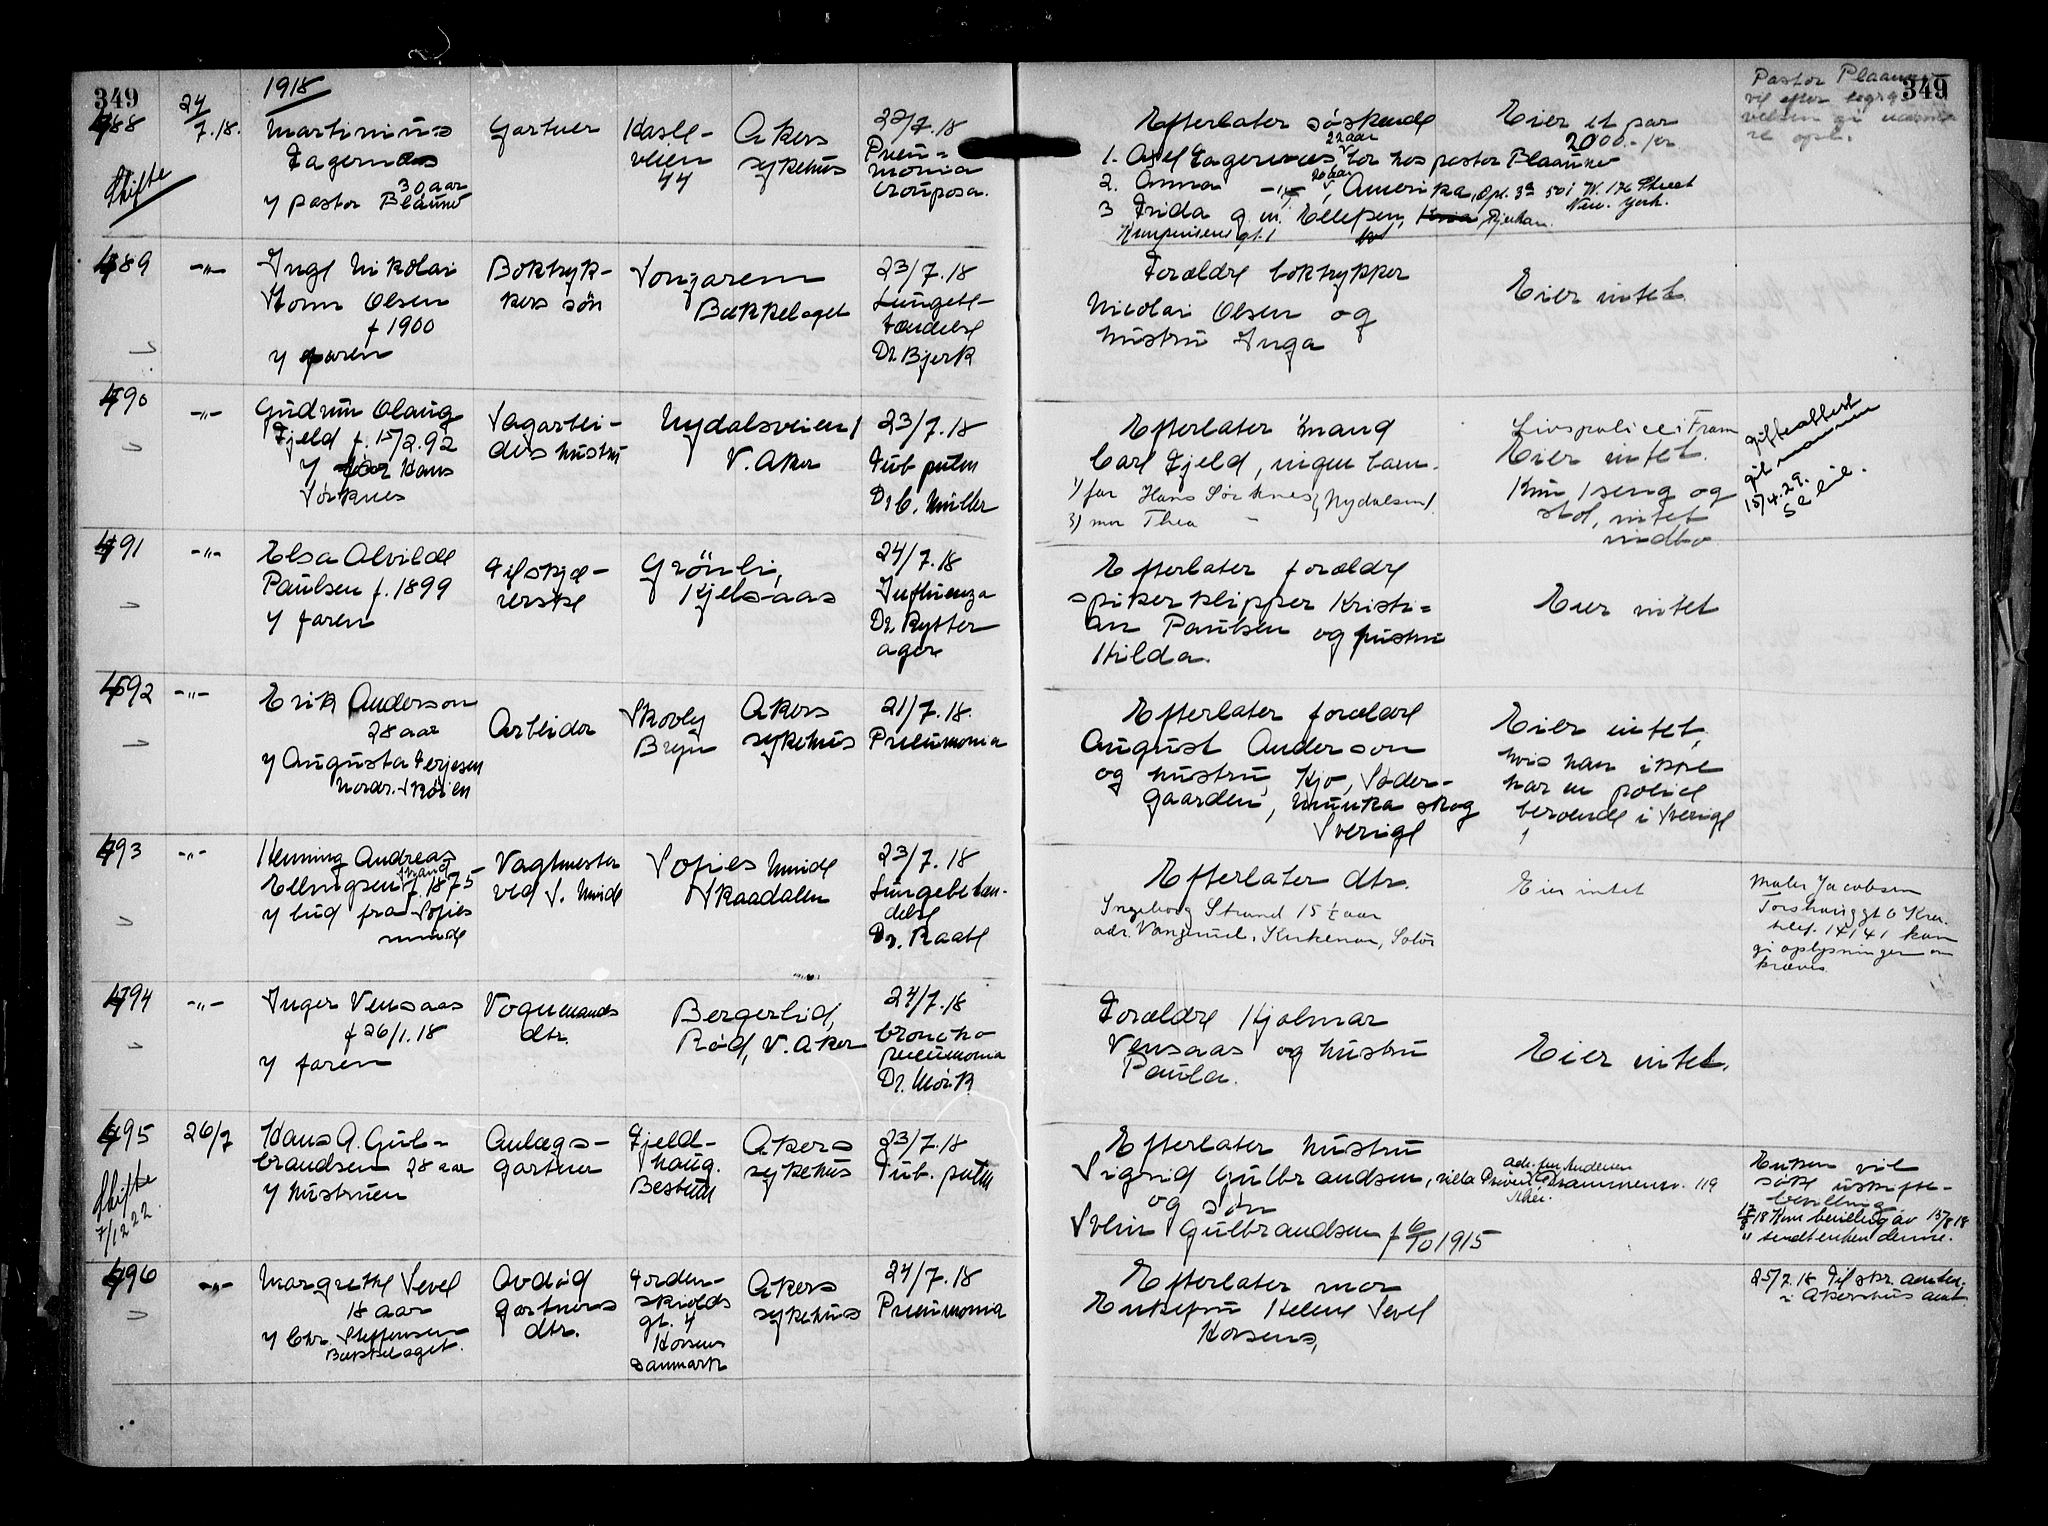 349
1918
488
24/7.18.
Skifte
Martinius
Fagernæs
30 aar
y pastor Plaanne
Gartner
Hasle-
veien
44
Akers
sykehus
22/7.18
Pneu-
monia
crouposa.
Efterlater søskende
22 aar
1. Axel Fagernæs, bor hos pastor Plaanne
20 aar
2. Anna -"- , Amerika, Apt. 3a 501 W. 176 Street
New York.
3 Frida g. m. Ellefsen, Rjukan.
Eier et par
2000.- kr
349
Pastor Plaanne
vil efter begra-
velsen gi nærme-
re opl.
489
-"-
Inge Nikolai
Storm Olsen
f 1900
y faren
Boktryk-
kers søn
Solgarem
Bækkelaget
23/7.18
Lungebe-
tændelse
Dr. Bjerk
Forældre boktrykker
Nicolai Olsen og
hustru Inga
Eier intet
490
-"-
Gudrun Olaug
Fjeld f. 15/2.92
y far Hans
Sørknes
Sagarbei-
ders hustru
Nydalsveien 1
V. Aker
23/7.18
Tub pulm
Dr C. Müller
Efterlater mand
Carl Fjeld, ingen barn.
1) far Hans Sørknes, Nydalsv. 1.
2) mor Thea -
Livspolice i Fram
Eier intet.
Kun 1 seng og
stol, intet
indbo
gifteattest
git mannen
15/4.29.
491
-"-
Elsa Alvilde
Paulsen f. 1899
y faren
Filskjæ-
rerske
Grønli,
Kjelsaas
24/7.18
Influenza
Dr. Rytter
ager
Efterlater forældre
spikerklipper Kristi-
an Paulsen og hustru
Hilda.
Eier intet
492
-"-
Erik Anderson
28 aar
y Augusta Terjesen
nordr. Skøien
Arbeider
Skovly
Bryn
Akers
sykehus
21/7.18.
Pneumonia
Efterlater forældre
August Anderson
og hustru, Kjo, Søder-
gaarden, Munka skog
Sverige
Eier intet,
hvis han ikke
har en police
beroende i Sverige
493
-"-
Henning Andreas
Strand
Ellingsen f. 1875
y bud fra Sofies
minde
Vagtmester
ved S. Minde
Sofies Minde
Skaadalen
23/7.18
Lungebetæn-
delse
Dr. Raabe
Efterlater dtr.
Ingeborg Strand 15 1/2 aar
adr. Kirkenær, Solør
Eier intet
Maler Jacobsen
Torshauggt 6 Kra.
telef. 14141 kan
gi oplysninger om
kræves
494
-"-
Inger Vensaas
f 26/1.18
y faren
Vognmands
dtr.
Bergerlid,
Rød, V. Aker
24/7.18
broncho
pneumonia
Dr. Mørk
Forældre Hjalmar
Vensaas og hustru
Paula.
Eier intet.
495
26/7
Skifte
7/12 22.
Hans A. Gul-
brandsen 28 aar
y hustruen
Anlægs-
gartner
Fjeld-
haug.
Bestum
Akers
sykehus
23/7.18
Tub. pulm
Efterlater hustru
Sigrid Gulbrandsen, Drammensv. 119
og søn
Svein Gulbrandsen f 6/10 1915
Enken vil
søke uskifte-
bevilling
17/8 18 Kun bevilling av 15/8 18
" sendt enken denne.
496
-"-
Margrethe Sevel
18 aar
y Chr. Steffensen
Bækkelaget.
Avdød
gartners
dtr.
Torden-
skiolds
gt. 4
Horsens
Danmark
Akers
sykehus
24/7.18
Pneumonia
Efterlater mor
Enkefru Helene Sevel
Horsens,
25/7.18 Til skr. amtm.
i Akershus amt